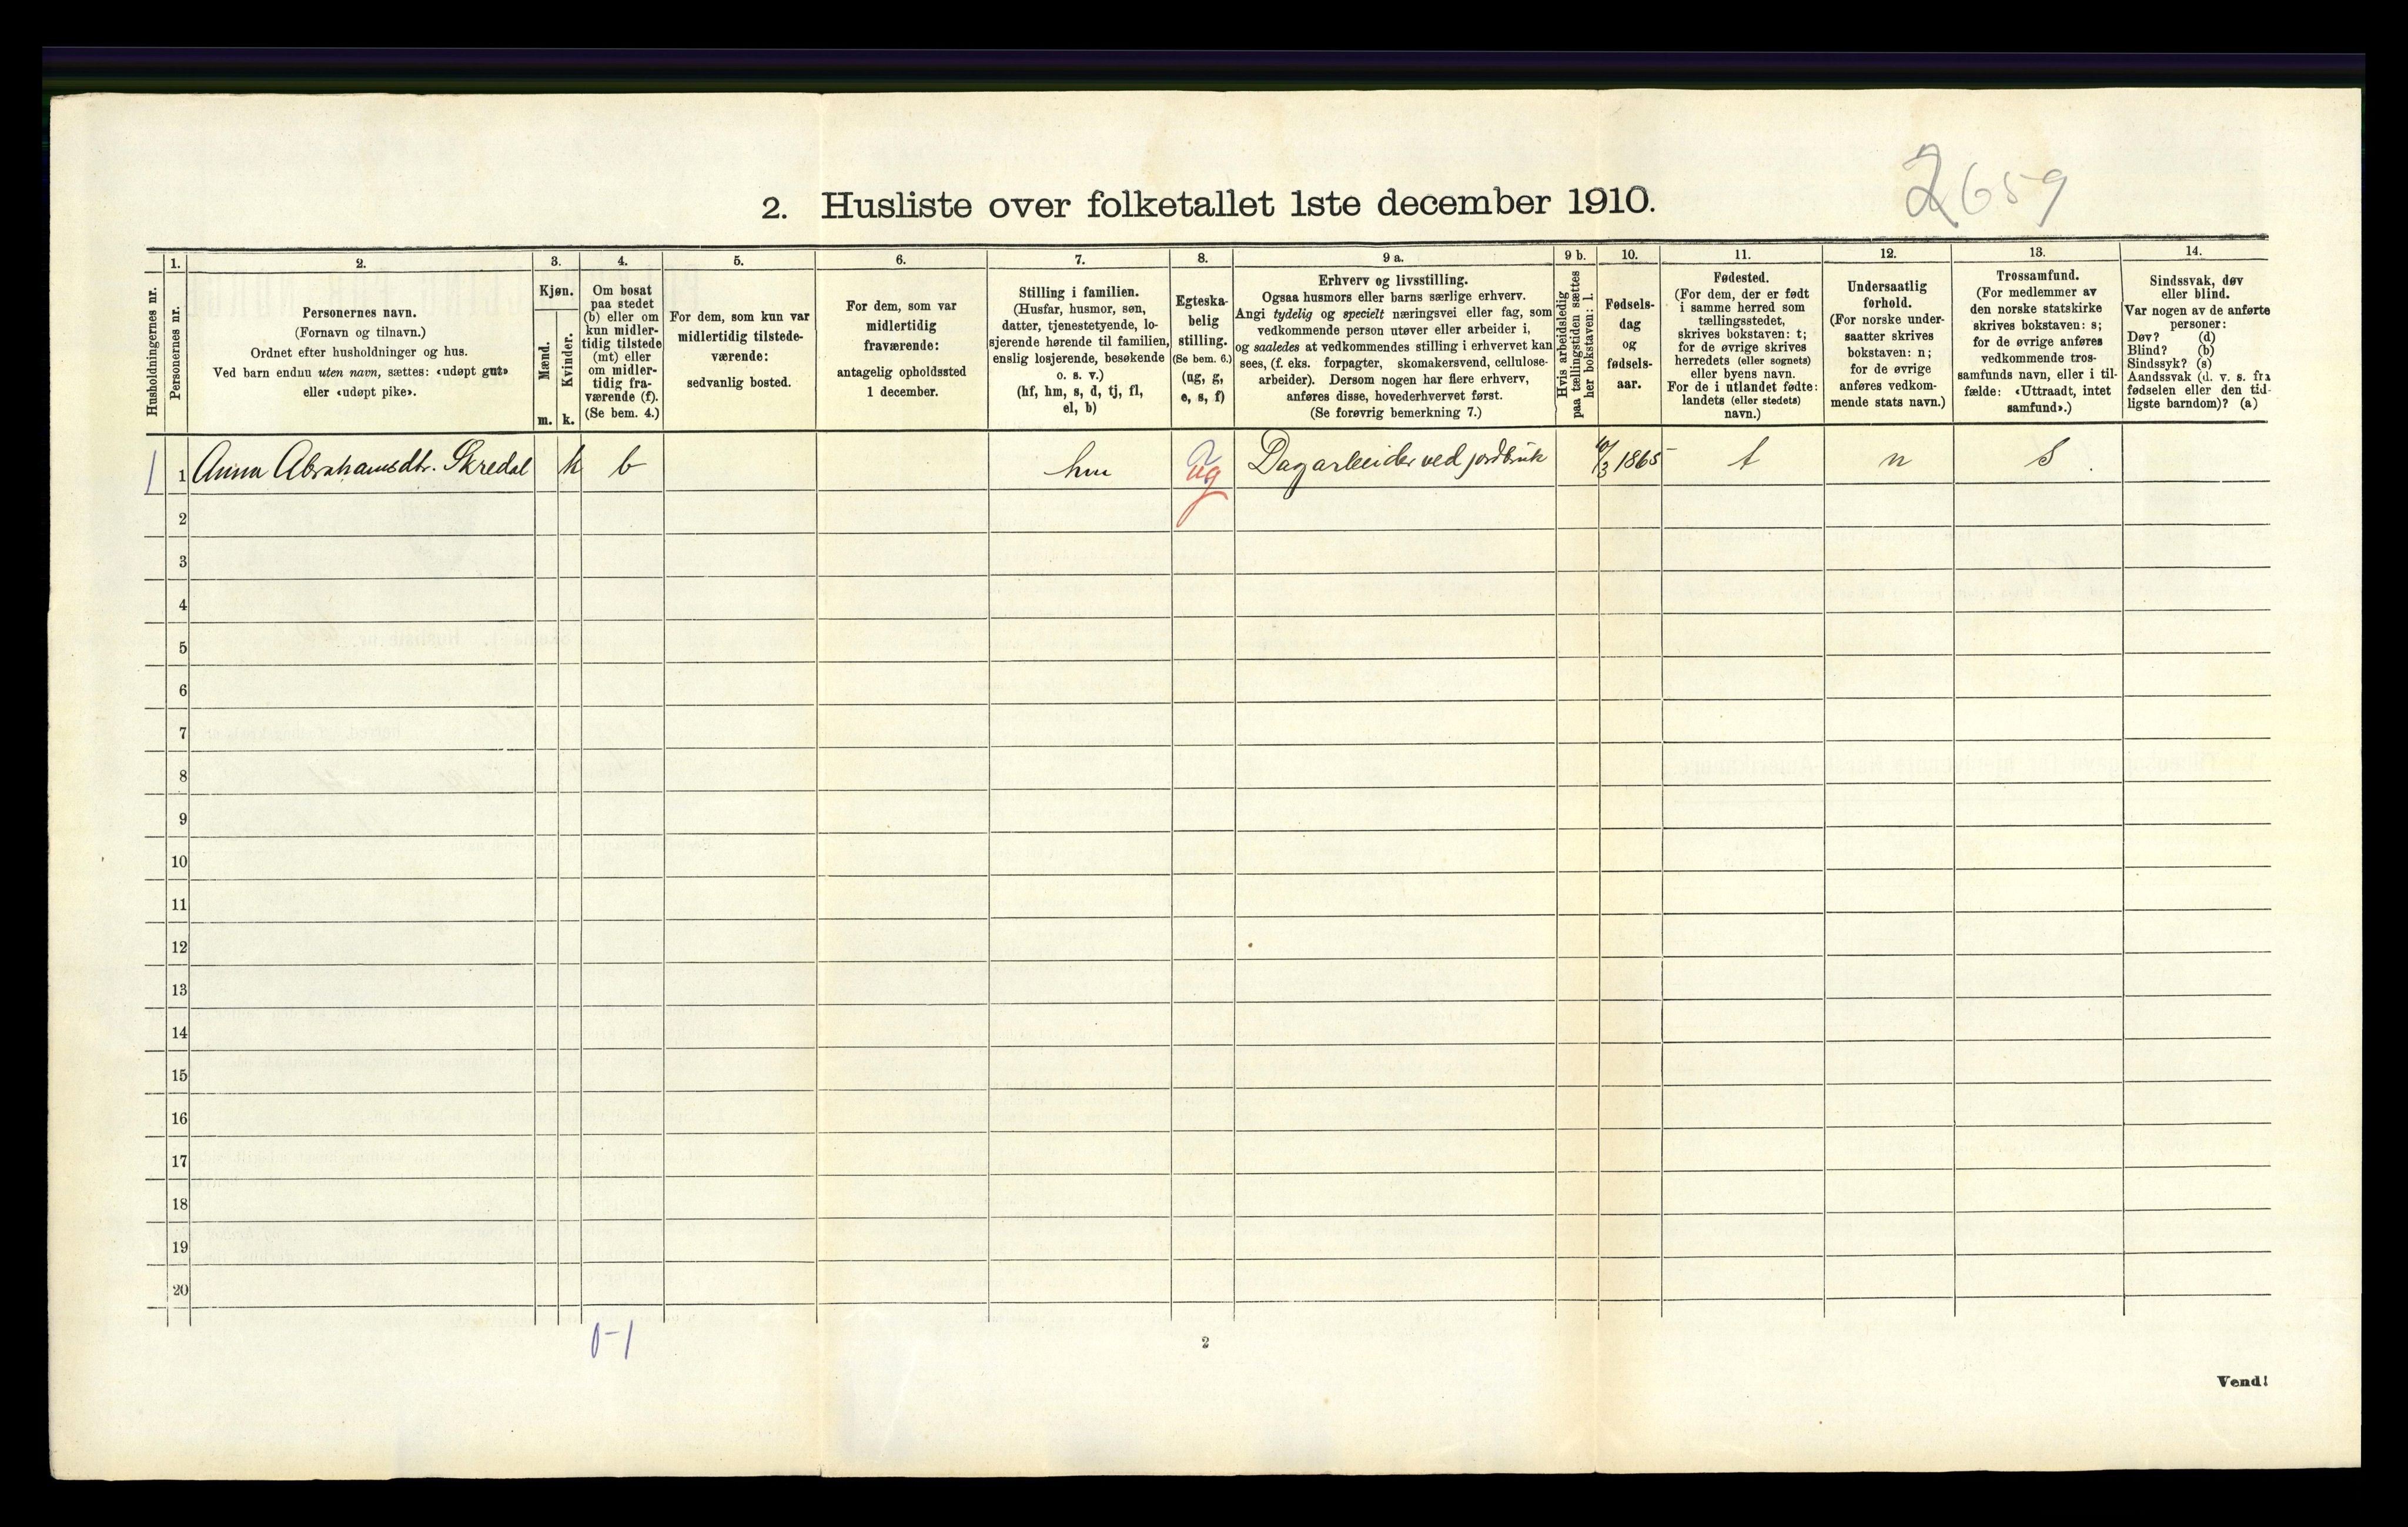 2659
2. Husliste over folketallet 1ste december 1910.
Husholdningernes nr.
1.
Personernes nr.
2.
Personernes navn.
(Fornavn og tilnavn.)
Ordnet efter husholdninger og hus.
Ved barn endnu uten navn, sættes: «udøpt gut»
eller «udøpt pike».
3.
Kjøn.
Mænd.
m.
Kvinder.
k.
4.
Om bosat
paa stedet
(b) eller om
kun midler-
tidig tilstede
(mt) eller
om midler-
tidig fra-
værende (f).
(Se bem. 4.)
5.
For dem, som kun var
midlertidig tilstede-
værende:
sedvanlig bosted.
6.
For dem, som var
midlertidig
fraværende:
antagelig opholdssted
1 december.
7.
Stilling i familien.
(Husfar, husmor, søn,
datter, tjenestetyende, lo-
sjerende hørende til familien,
enslig losjerende, besøkende
o. s. v.)
(hf, hm, s, d, tj, fl,
el, b)
8.
Egteska-
belig
stilling.
(Se bem. 6.)
(ug, g,
e, s, f)
9 a.
Erhverv og livsstilling.
Ogsaa husmors eller barns særlige erhverv.
Angi tydelig og specielt næringsvei eller fag, som
vedkommende person utøver eller arbeider i,
og saaledes at vedkommendes stilling i erhvervet kan
sees, (f. eks. forpagter, skomakersvend, cellulose-
arbeider). Dersom nogen har flere erhverv,
anføres disse, hovederhvervet først.
(Se forøvrig bemerkning 7.)
9 b.
Hvis arbeidsledig
paa tællingstiden sættes
her bokstaven: l.
10.
Fødsels-
dag
og
fødsels-
aar.
11.
Fødested.
(For dem, der er født
i samme herred som
tællingsstedet,
skrives bokstaven: t;
for de øvrige skrives
herredets (eller sognets)
eller byens navn.
For de i utlandet fødte:
landets (eller stedets)
navn.)
12.
Undersaatlig
forhold.
(For norske under-
saatter skrives
bokstaven: n;
for de øvrige
anføres vedkom-
mende stats navn.)
13.
Trossamfund.
(For medlemmer av
den norske statskirke
skrives bokstaven: s;
for de øvrige anføres
vedkommende tros-
samfunds navn, eller i til-
fælde: «Uttraadt, intet
samfund».)
14.
Sindssvak, døv
eller blind.
Var nogen av de anførte
personer:
Døv? (d)
Blind? (b)
Sindssyk? (s)
Aandssvak (d. v. s. fra
fødselen eller den tid-
ligste barndom)? (a)
1 1 Anna Abrahamsdtr. Skredal k b hm ug Dagarbeider ved jordbruk 10/3 1865 t n s.
2
3
4
5
6
7
8
9
10
11
12
13
14
15
16
17
18
19
20
0-1
2
Vend!